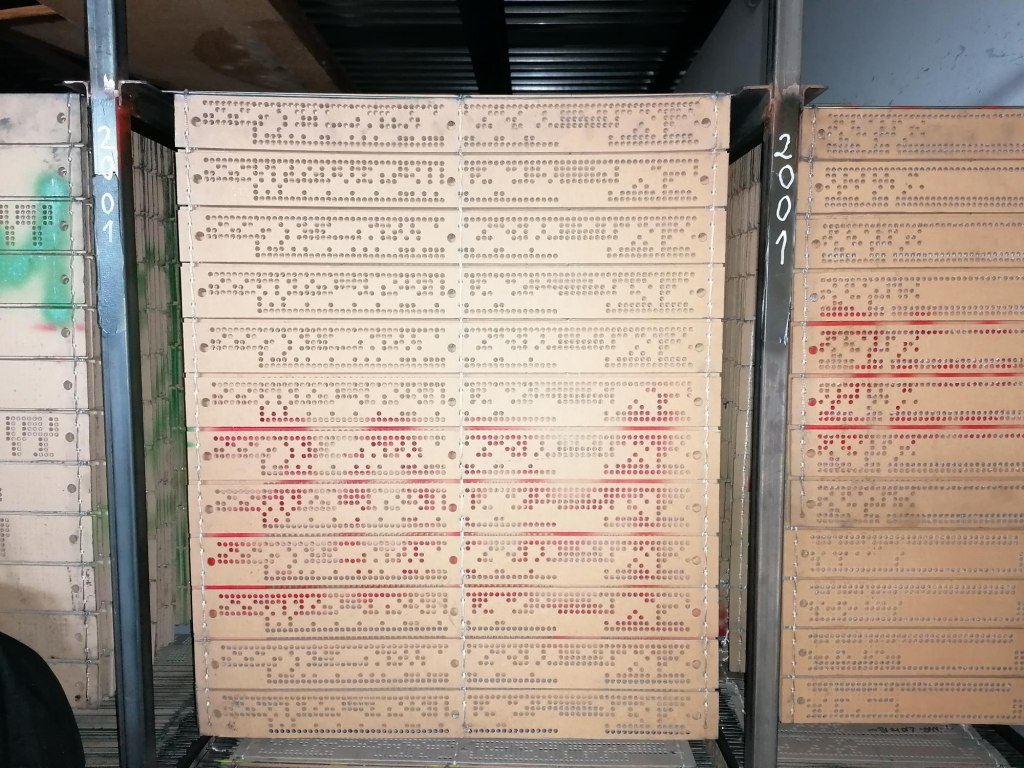 2001
2001